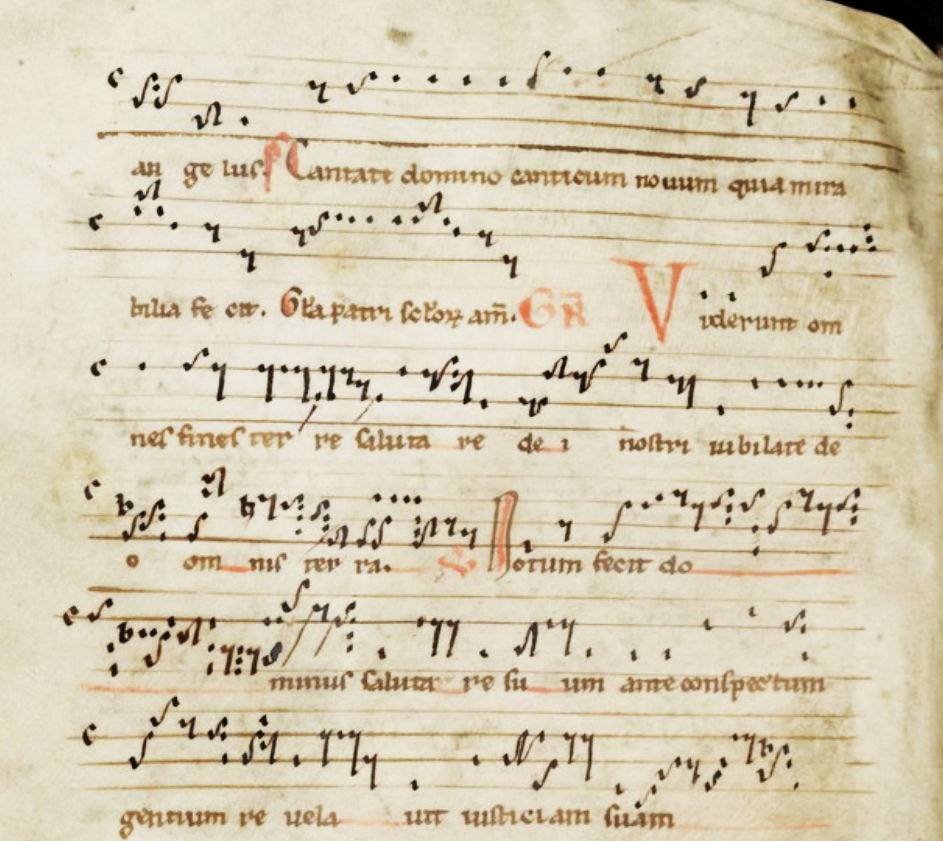 an ge lus. ps Cantate domino canticum nouum quia mira
bilia fe cit. Gła patri sclor am̄. GR Viderunt om
nes fines ter re saluta re de i nostri iubilate de
o om nis ter ra. Notum fecit do
minus saluta re su um ante conspectum
gentium re uela uit iusticiam suam